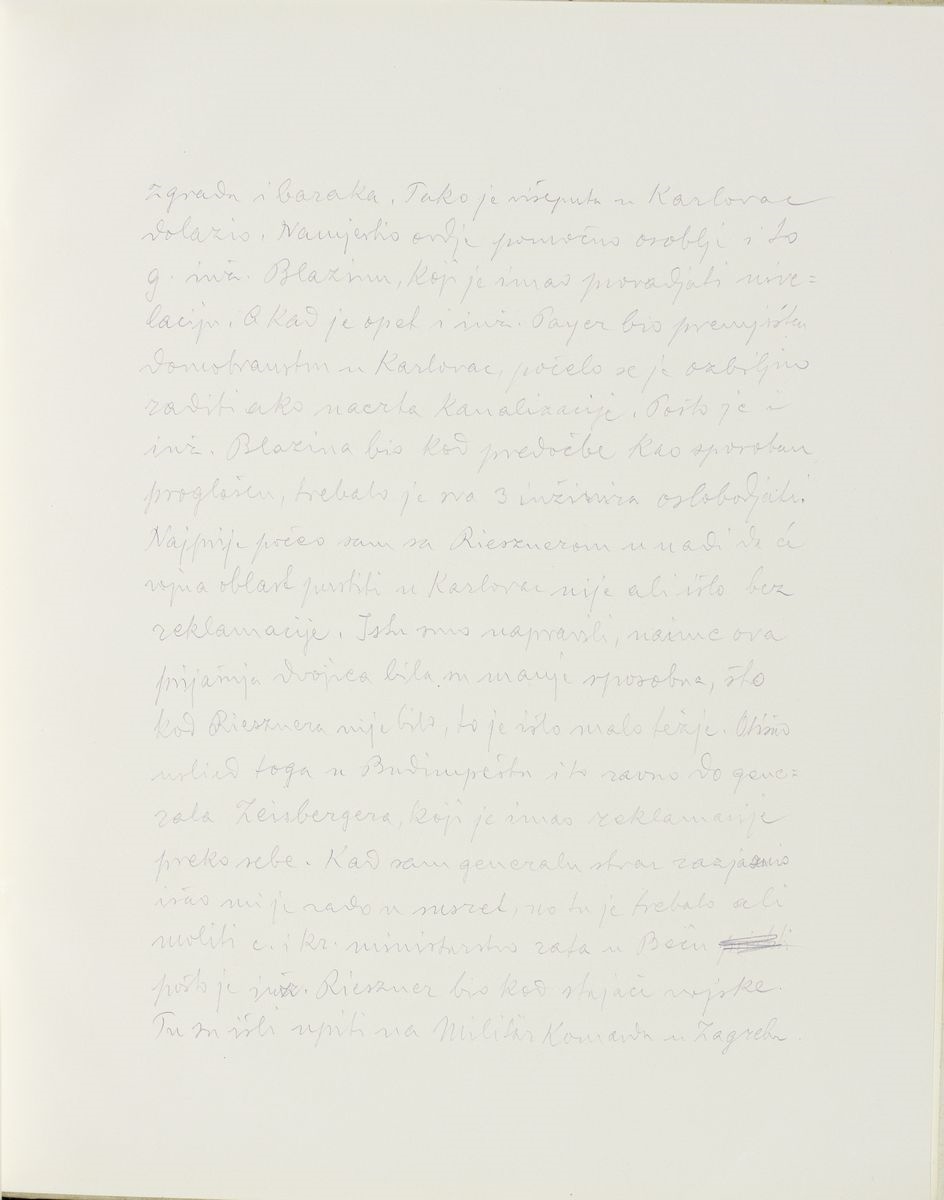 zgrada i baraka. Tako je višeputa u Karlovac
dolazio. Namjestio ovdje pomoćno osoblje i to
g. inž. Blazinu, koji je imao provadjati nive=
laciju. A kad je opet i inž. Payer bio premješten
domobranstvu u Karlovac, počelo se je ozbiljno
raditi oko nacrta kanalizacije. Pošto je i
inž. Blazina bio kod predočbe kao sposoban
proglašen, trebalo je sva 3 inžinira oslobodjati.
Najprije počeo sam sa Riesznerom u nadi da će
vojna oblast pustiti u Karlovac nije ali išlo bez
reklamacije. Istu smo napravili, naime ova
prijašnja dvojica bila su manje sposobna, što
kod Riesznera nije bilo, to je išlo malo težje. Otišao
uslied toga u Budimpeštu i to ravno do gene=
rala Zeisbergera, koji je imao reklamacije
preko sebe. Kad sam generalu stvar razjasnio
išao mi je rado u susret, no tu je trebalo ali
moliti c. i kr. ministarstvo rata u Beču
pošto je inž. Rieszner bio kod stajaće vojske.
Tu su išli upiti na Militär Komandu u Zagrebu.